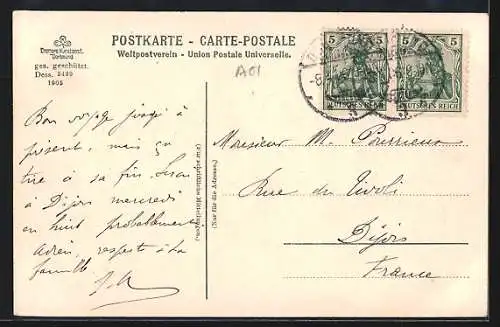 Cramers Kunstanst.
Dortmund
ges. geschützt.
Dess. 2499
1905
POSTKARTE - CARTE-POSTALE
Weltpostverein - Union Postale Universelle.
A01
5 5
5 5
DEUTSCHES REICH
DEUTSCHES REICH
Bon voyage jusqu'à
présent, mais ça
tire à sa fin. Serai
à Dijon mercredi
en huit probablement
respects à la
famille
(Für schriftliche Mitteilungen.)
(Nur für die Adresse.)
Monsieur M.
Rue de Tivoli
Dijon
France